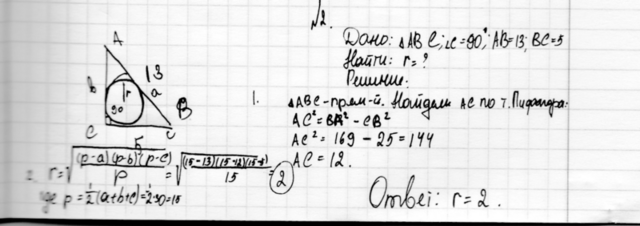 №2.
Дано: △ABC; ∠C=90°; AB=13; BC=5
Найти: r=?
Решение:
1. △ABC-прям-й. Найдем AC по т. Пифагора:
AC²=BA²-CB²
AC²=169-25=144
AC=12.
A
13
b
r
a
90
B
C
c
5
2. r=√((p-a)(p-b)(p-c)/p)=√((15-13)(15-12)(15-5)/15)=2
где p=½(a+b+c)=½·30=15
Ответ: r=2.